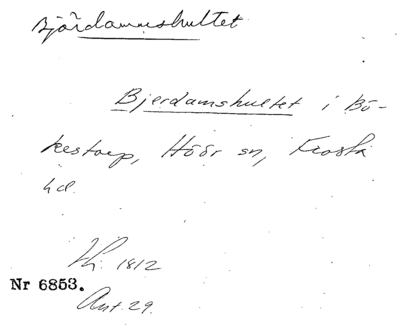 Björdamshultet
Bjerdamshultet i Bö-
kestorp, Höör sn, Frosta
hd
Lh. 1812
Nr 6853.
Ant. 29.